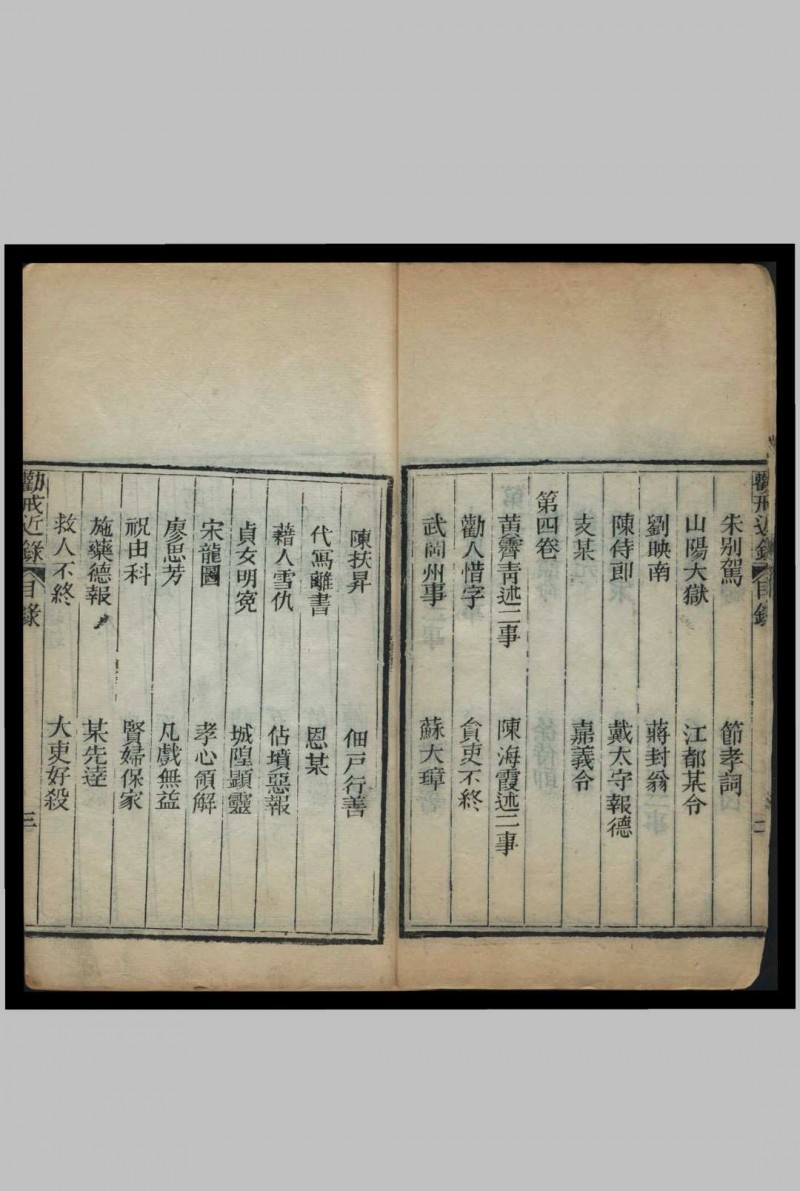 勸戒近錄 目錄 二
朱別駕 節孝詞
山陽大獄 江都某令
劉映南 蔣封翁
陳侍郎 戴太守報德
支某 嘉義令
第四卷
黃霽青述二事 陳海霞述二事
勸人惜字 貪吏不終
武岡州事 蘇大璋
陳扶昇 佃戶行善
代寫離書 恩某
藉人雪仇 佔墳惡報
貞女明冤 城隍顯靈
宋龍圖 孝心領解
廖思芳 凡戲無益
祝由科 賢婦保家
施藥德報 某先達
救人不終 大吏好殺
勸戒近錄 目錄 三